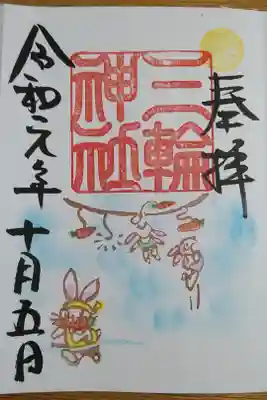 奉拝
三輪
神社
令和元年十月五日